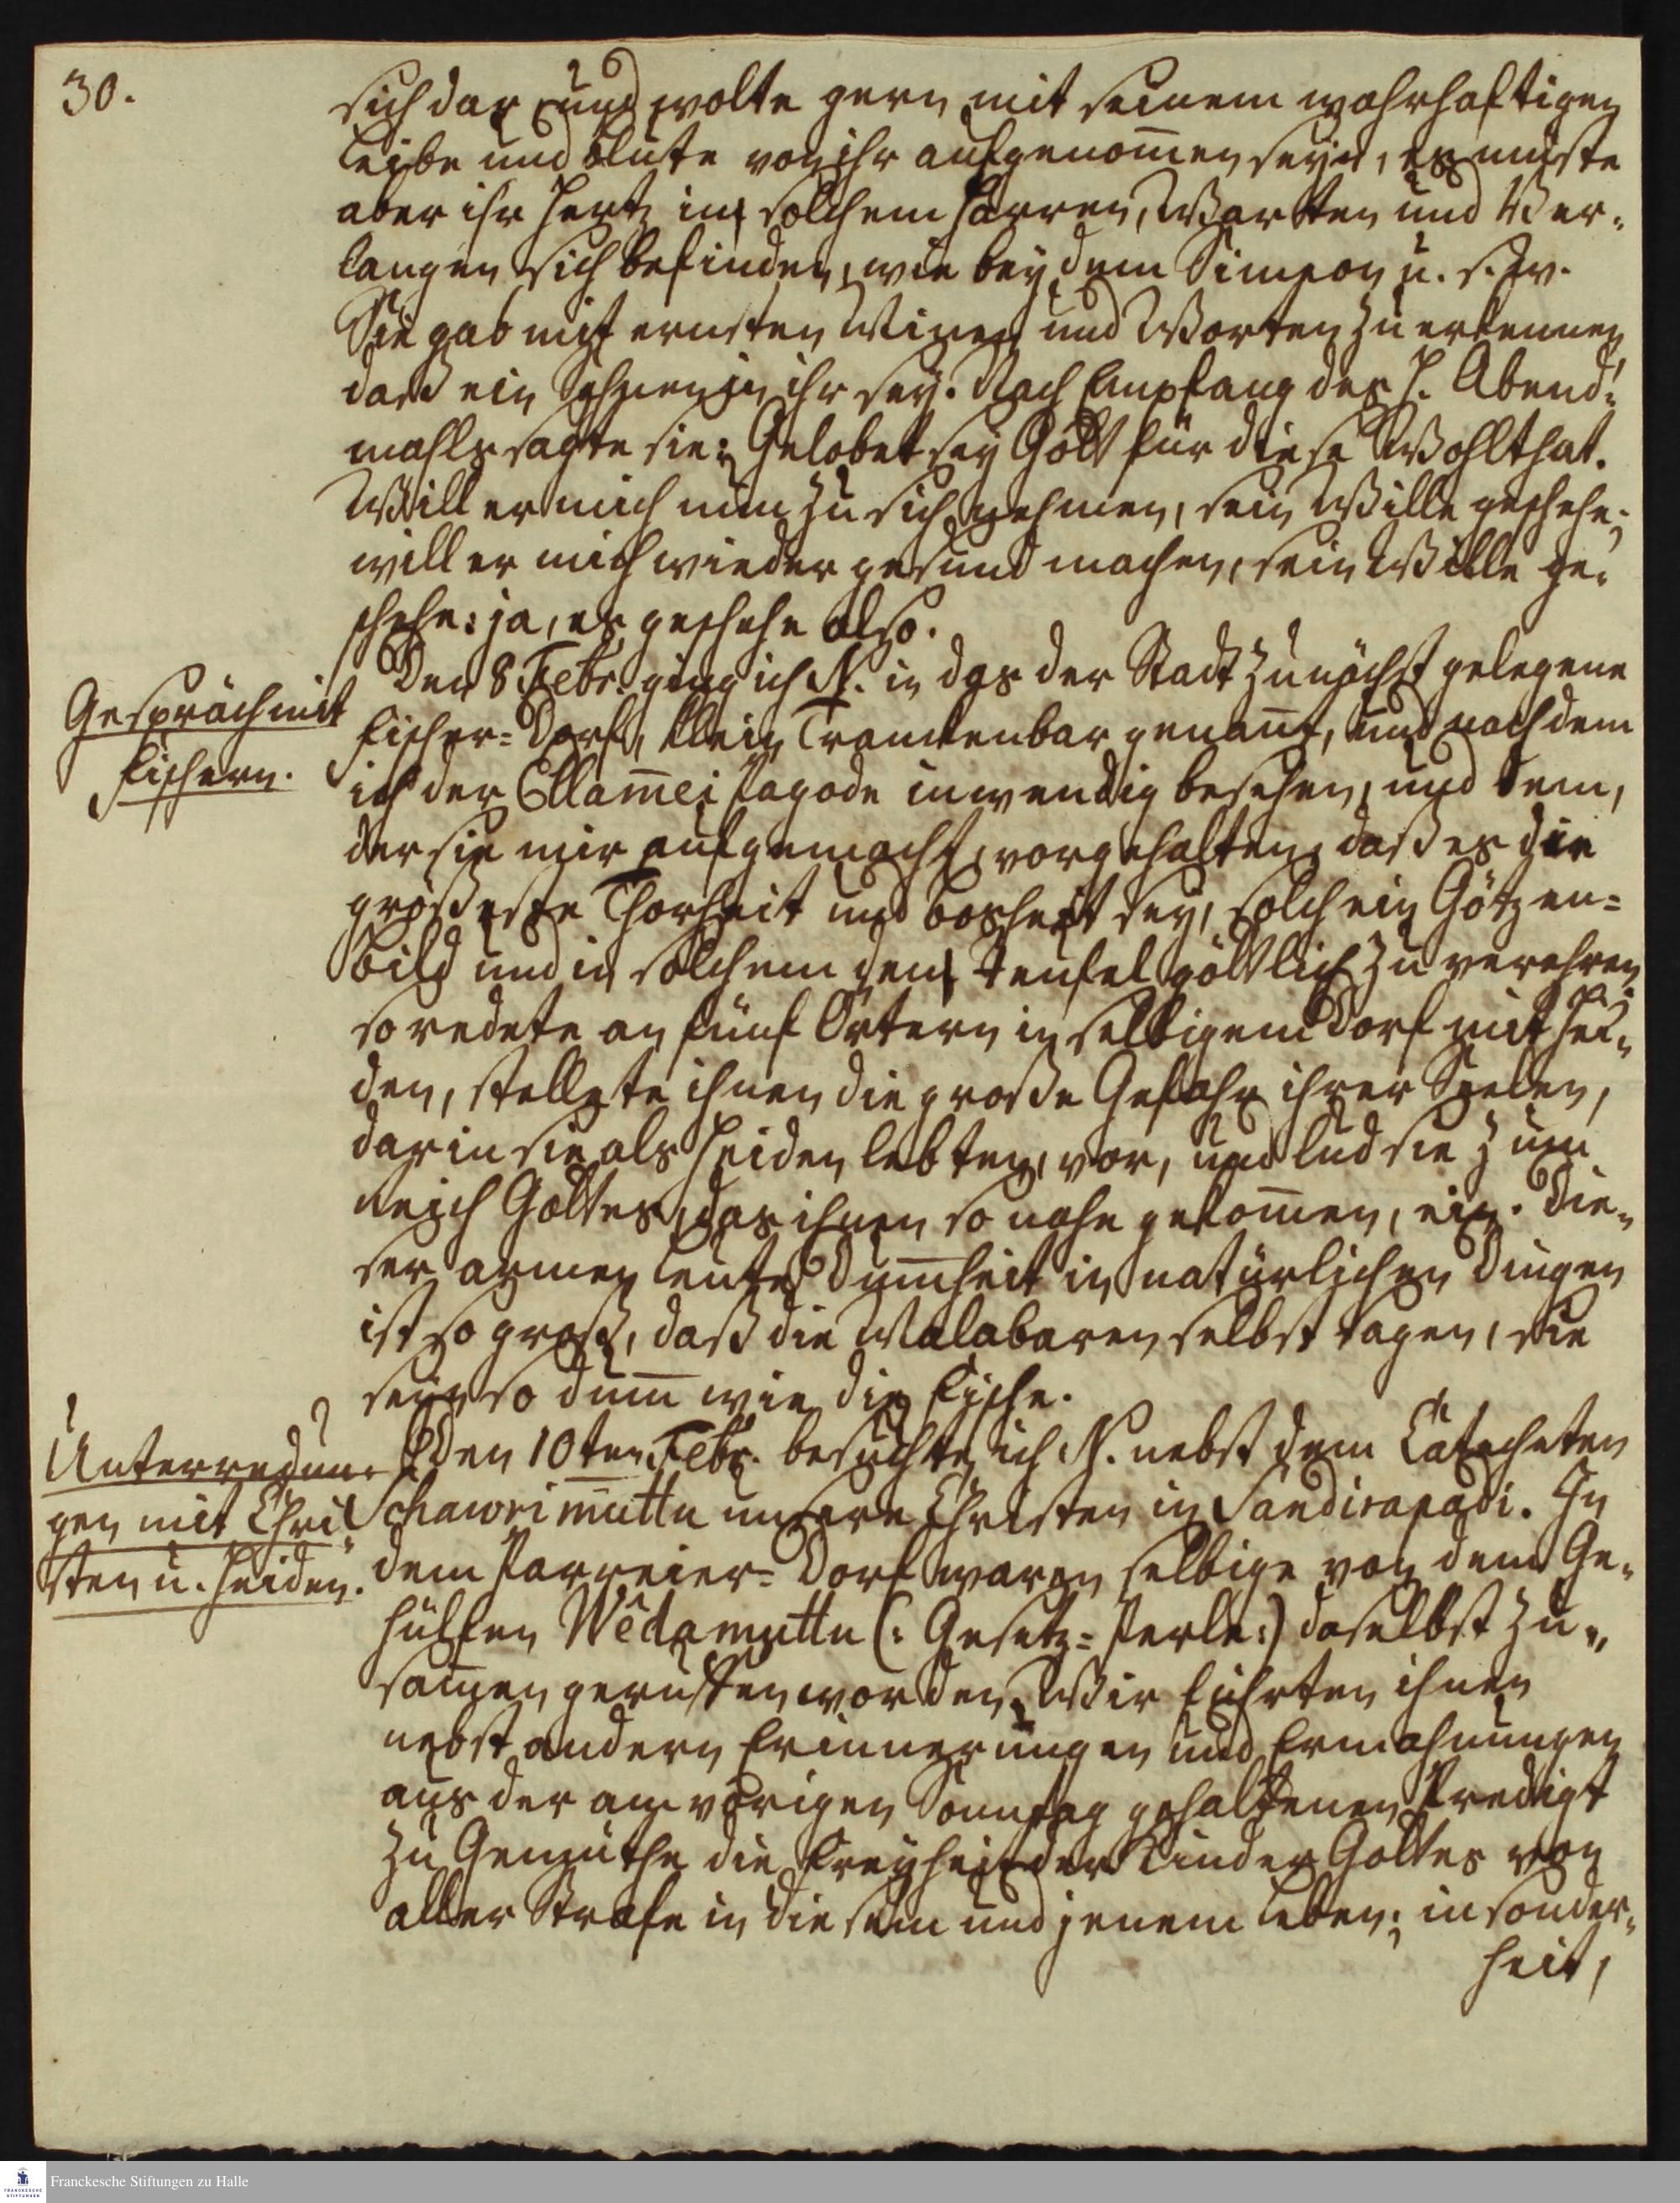 30.
sich dar und wolte gern mit seinem wahrhaftigen
Leibe und Blute von ihr aufgenom̄en seyn, es müste
aber ihr Hertz in solchem Harren, Warten und Ver-
langen sich befinden, wie bey dem Simeon u. s. w.
Sie gab mit ernsten Minen und Worten zu erkennen,
daß ein Sehnen in ihr sey. Nach Empfang des H. Abend-
mahls sagte sie: Gelobet sey Gott für diese Wohlthat.
Will er mich nun zu sich nehmen, sein Wille geschehe;
will er mich wieder gesund machen, sein Wille ge-
schehe: ja, es geschehe also.
Gespräch mit
Fischern.
Den 8 Febr. ging ich N. in das der Stadt zunächst gelegene
Fischer=Dorf, klein Trankenbar genañt, und nachdem
ich der Ellam̄ei Pagode inwendig besehen, und dem,
der sie mir aufgemacht, vorgehalten, daß es die
größeste Thorheit und Bosheit sey, solch ein Götzen=
Bild und in solchem den Teufel göttlich zu verehren,
so redete an fünf Örtern in selbigem Dorf mit Hei-
den, stellete ihnen die große Gefahr ihrer Seelen,
darin sie als Heiden lebten, vor, und lud sie zum
Reich Gottes, das ihnen so nahe gekom̄en, ein. Die-
ser armen Leute Dum̄heit in natürlichen Dingen
ist so groß, daß die Malabaren selbst sagen, sie
seyn so dum̄ wie die Fische.
Unterredun-
gen mit Chri-
sten u. Heiden.
Den 10ten Febr. besuchte ich N. nebst dem Catecheten
Schawrimuttu unsere Christen in Sandirapadi. In
dem Parreier=Dorf waren selbige von dem Ge-
hülfen Wêdamuttu (: Gesetz=Perle:) daselbst zu-
sam̄en geruffen worden. Wir führten ihnen
nebst andern Erinnerungen und Ermahnungen
aus der am vorigen Sonntag gehaltenen Predigt
zu Gemüthe die Freyheit der Kinder Gottes von
aller Strafe in diesem und jenem Leben; insonder-
heit,
Franckesche Stiftungen zu Halle